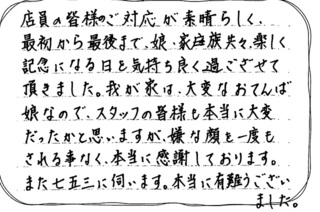 店員の皆様のご対応が素晴らしく、
最初から最後まで、娘、家庭族共々、楽しく
記念になる日を気持ち良く過ごさせて
頂きました。我が家は、大変なおてんば
娘なので、スタッフの皆様も本当に大変
だったかと思いますが、嫌な顔を一度も
される事なく、本当に感謝しております。
また七五三に伺います。本当に有難うござい
ました。